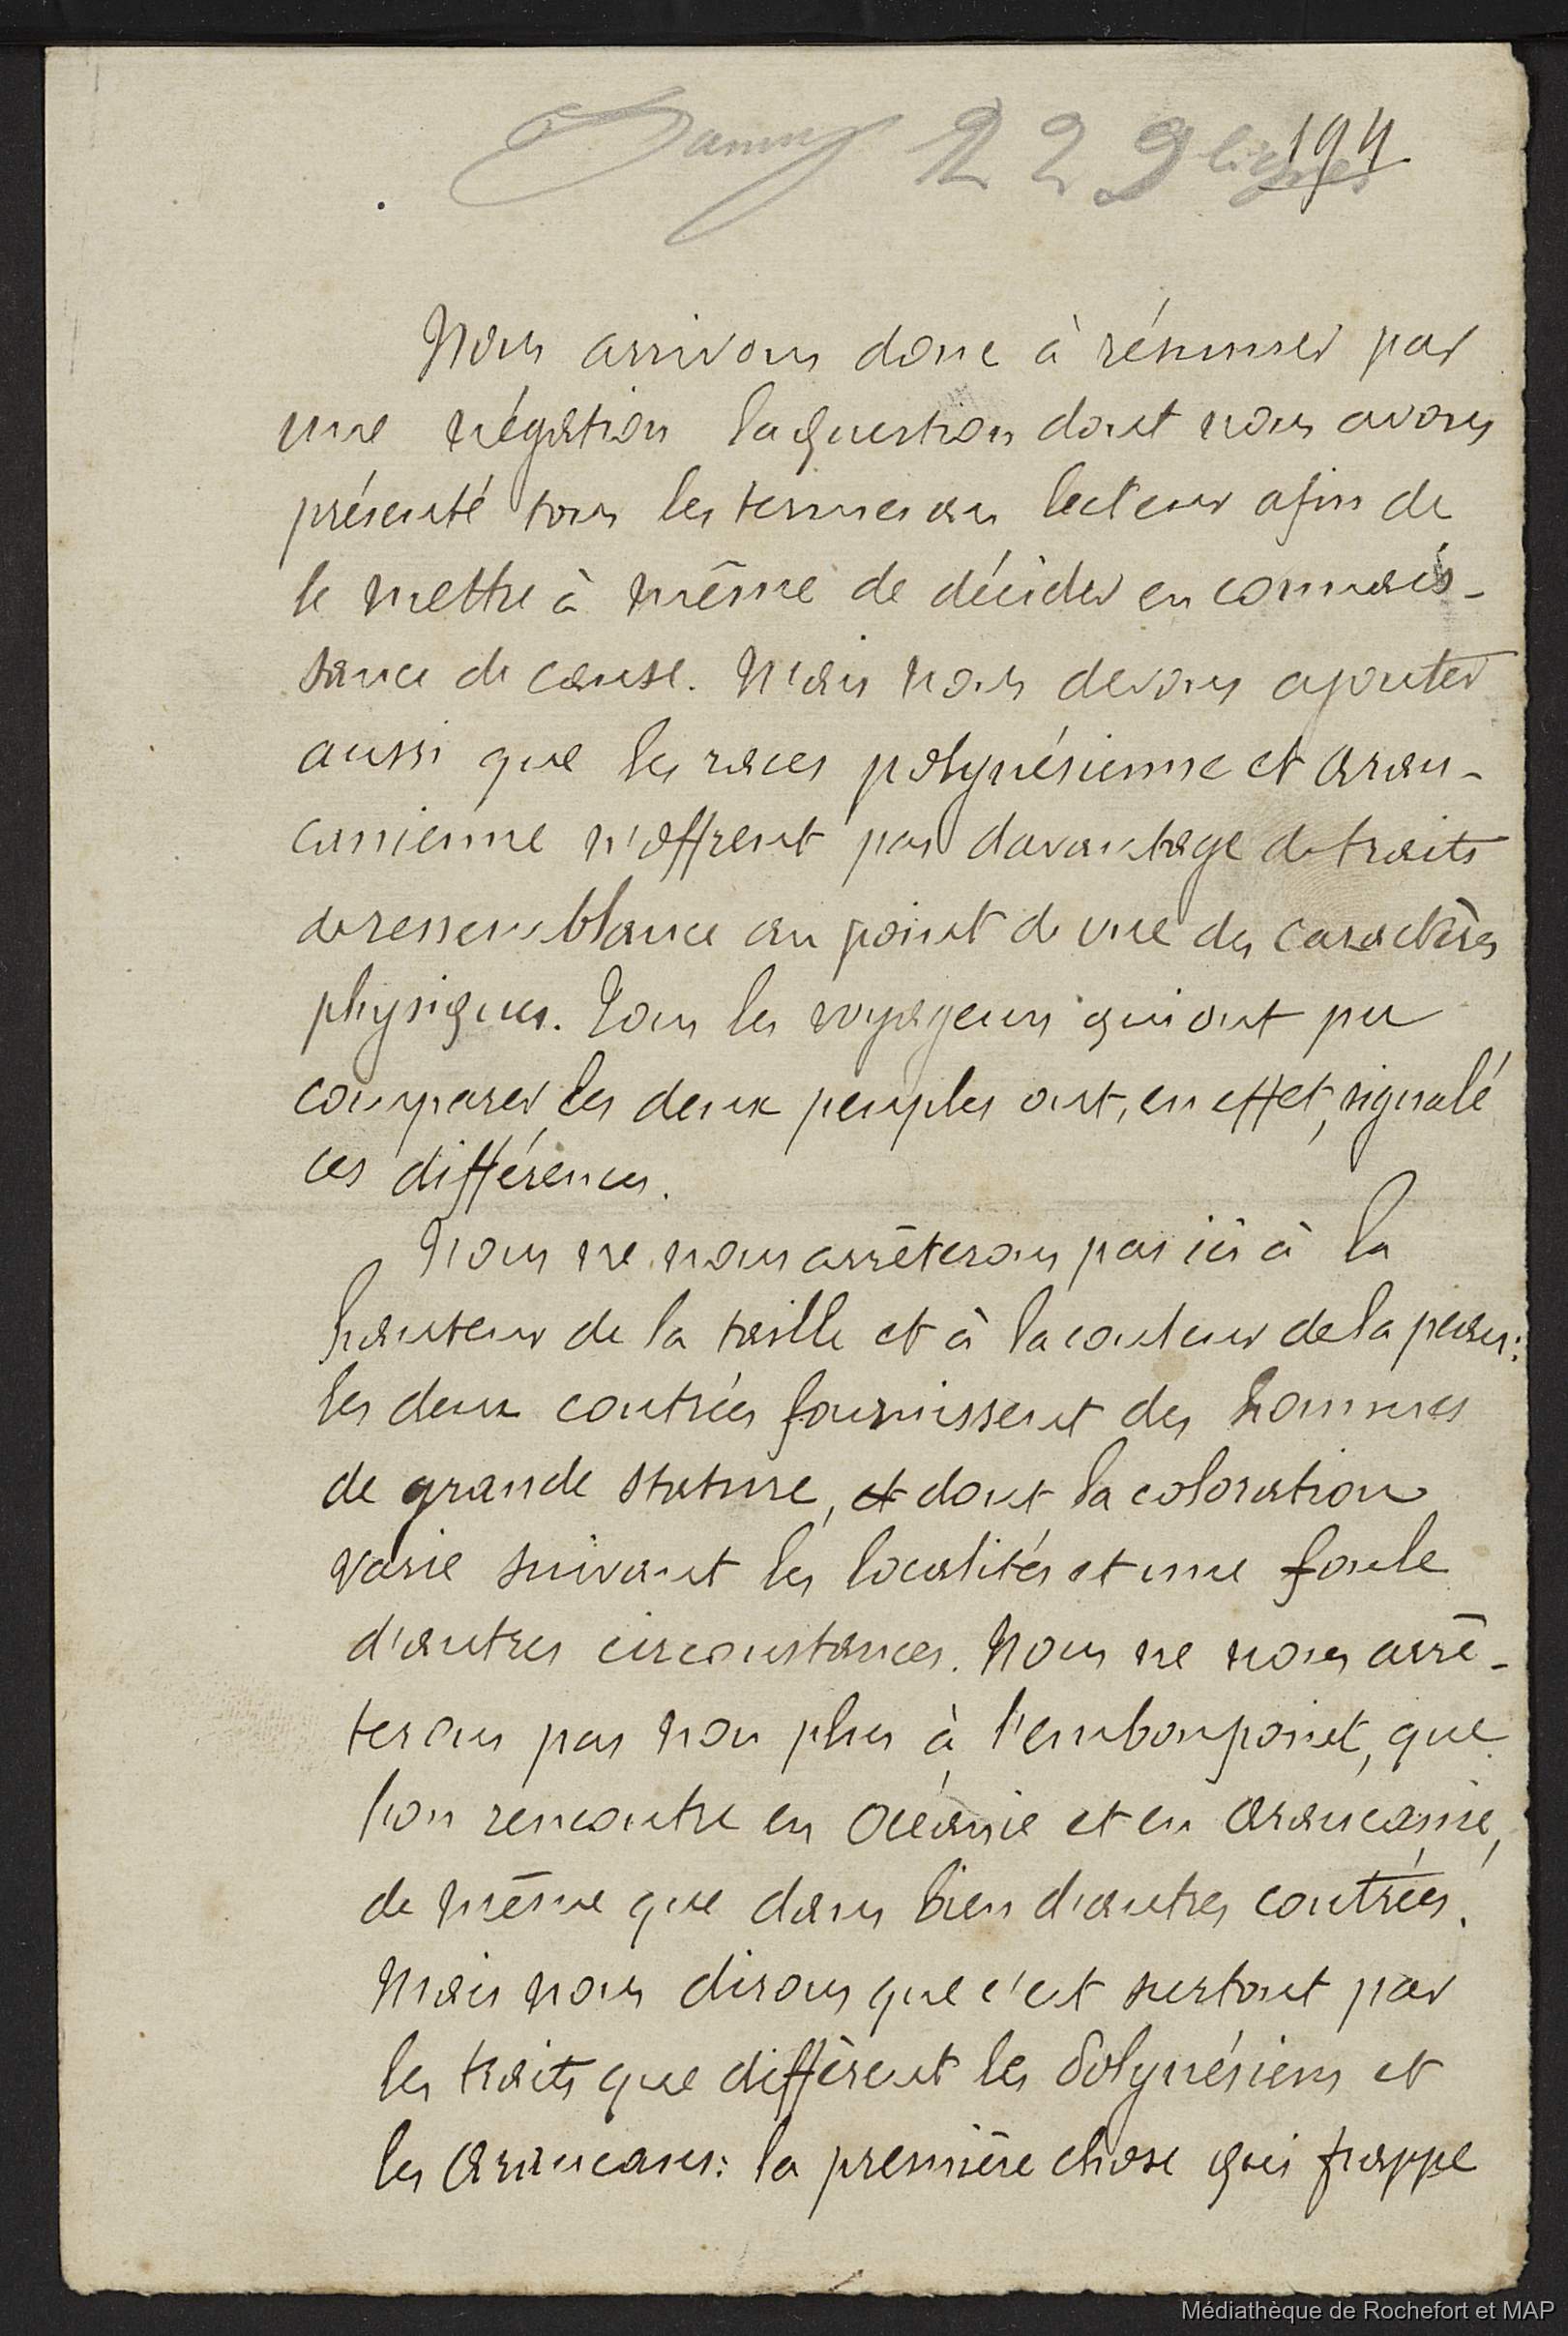 229 lignes
194
Nous arrivons donc à résumer par
une négation la question dont nous avons
présenté tous les termes au lecteur afin de
le mettre à même de décider en connais-
sance de cause. Mais nous devons ajouter
aussi que les races polynésienne et arau-
canienne n'offrent pas davantage de traits
de ressemblance au point de vue des caractères
physiques. Tous les voyageurs qui ont pu
comparer les deux peuples ont, en effet, signalé
ces différences.
Nous ne nous arrêterons pas ici à la
hauteur de la taille et à la couleur de la peau:
les deux contrées fournissent des hommes
de grande stature, et dont la coloration
varie suivant les localités et une foule
d'autres circonstances. Nous ne nous arrê-
terons pas non plus à l'embonpoint, que
l'on rencontre en Océanie et en Araucanie,
de même que dans bien d'autres contrées.
Mais nous dirons que c'est surtout par
les traits que diffèrent les Polynésiens et
les Araucans: la première chose qui frappe
Médiathèque de Rochefort et MAP